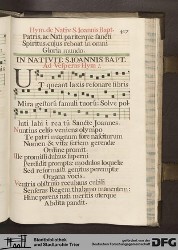 Hym. de Nativ. S. Joannis Bapt.
Patris, ac Nati pariterque sancti
Spiritus cujus reboat in omni
Gloria mundo.
IN NATIVIT. S. JOANNIS BAPT.
Ad Vesperas Hym.
Ut queant laxis resonare fibris
Mira gestorum famuli tuorum, Solve pol-
luti labii reatum Sancte Joannes.
Nuntius celso veniens olympo
Te patri magnum fore nasciturum
Nomen & vitae seriem gerendae
Ordine promit.
Ille promissi dubius superni
Perdidit promptae modulos loquelae
Sed reformasti genitus peremptae
Organa vocis.
Ventris obstruso recubans cubili
Senseras Regem thalamo manentem:
Hinc parens nati meritis uterque
Abdita pandit.
Stadtbibliothek
und Stadtarchiv Trier
DFG